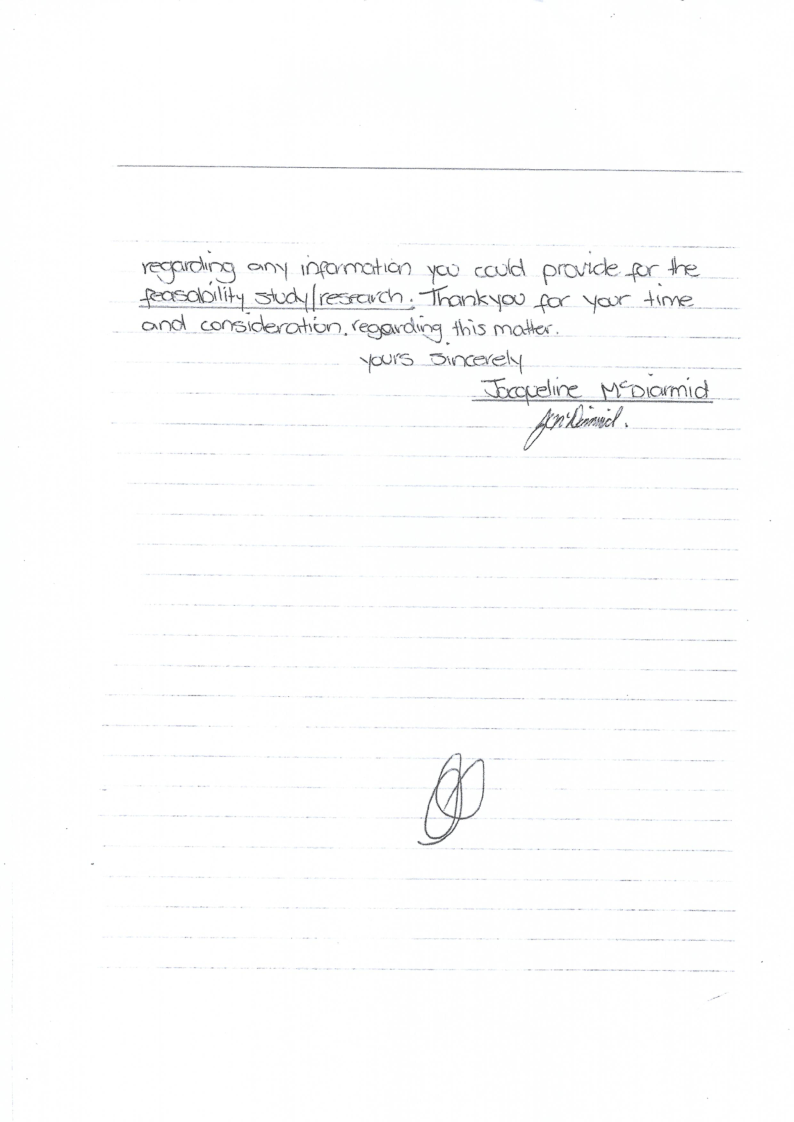 regarding any information you could provide for the
feasability study/research. Thankyou for your time
and consideration. regarding this matter.
yours Sincerely
Jacqueline McDiarmid
JMcDiarmid.